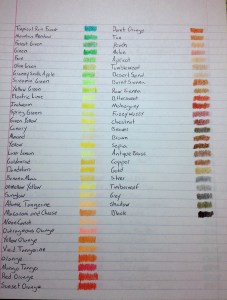 Tropical Rain Forest
Mountain Meadow
Forest Green
Green
Fern
Olive Green
Granny Smith Apple
Screamin Green
Yellow Green
Electric Lime
Inchworm
Spring Green
Green Yellow
Canary
Almond
Yellow
Laser Lemon
Goldenrod
Dandelion
Banana Mania
Unmellow Yellow
Sunglow
Atomic Tangerine
Macaroni and Cheese
Neon Carrot
Outrageous Orange
Yellow Orange
Vivid Tangerine
Orange
Mango Tango
Red Orange
Sunset Orange
Burnt Orange
Tan
Peach
Melon
Apricot
Tumbleweed
Desert Sand
Burnt Sienna
Raw Sienna
Bittersweet
Mahogany
Fuzzy Wuzzy
Chestnut
Beaver
Brown
Sepia
Antique Brass
Copper
Gold
Silver
Timberwolf
Gray
Shadow
Black